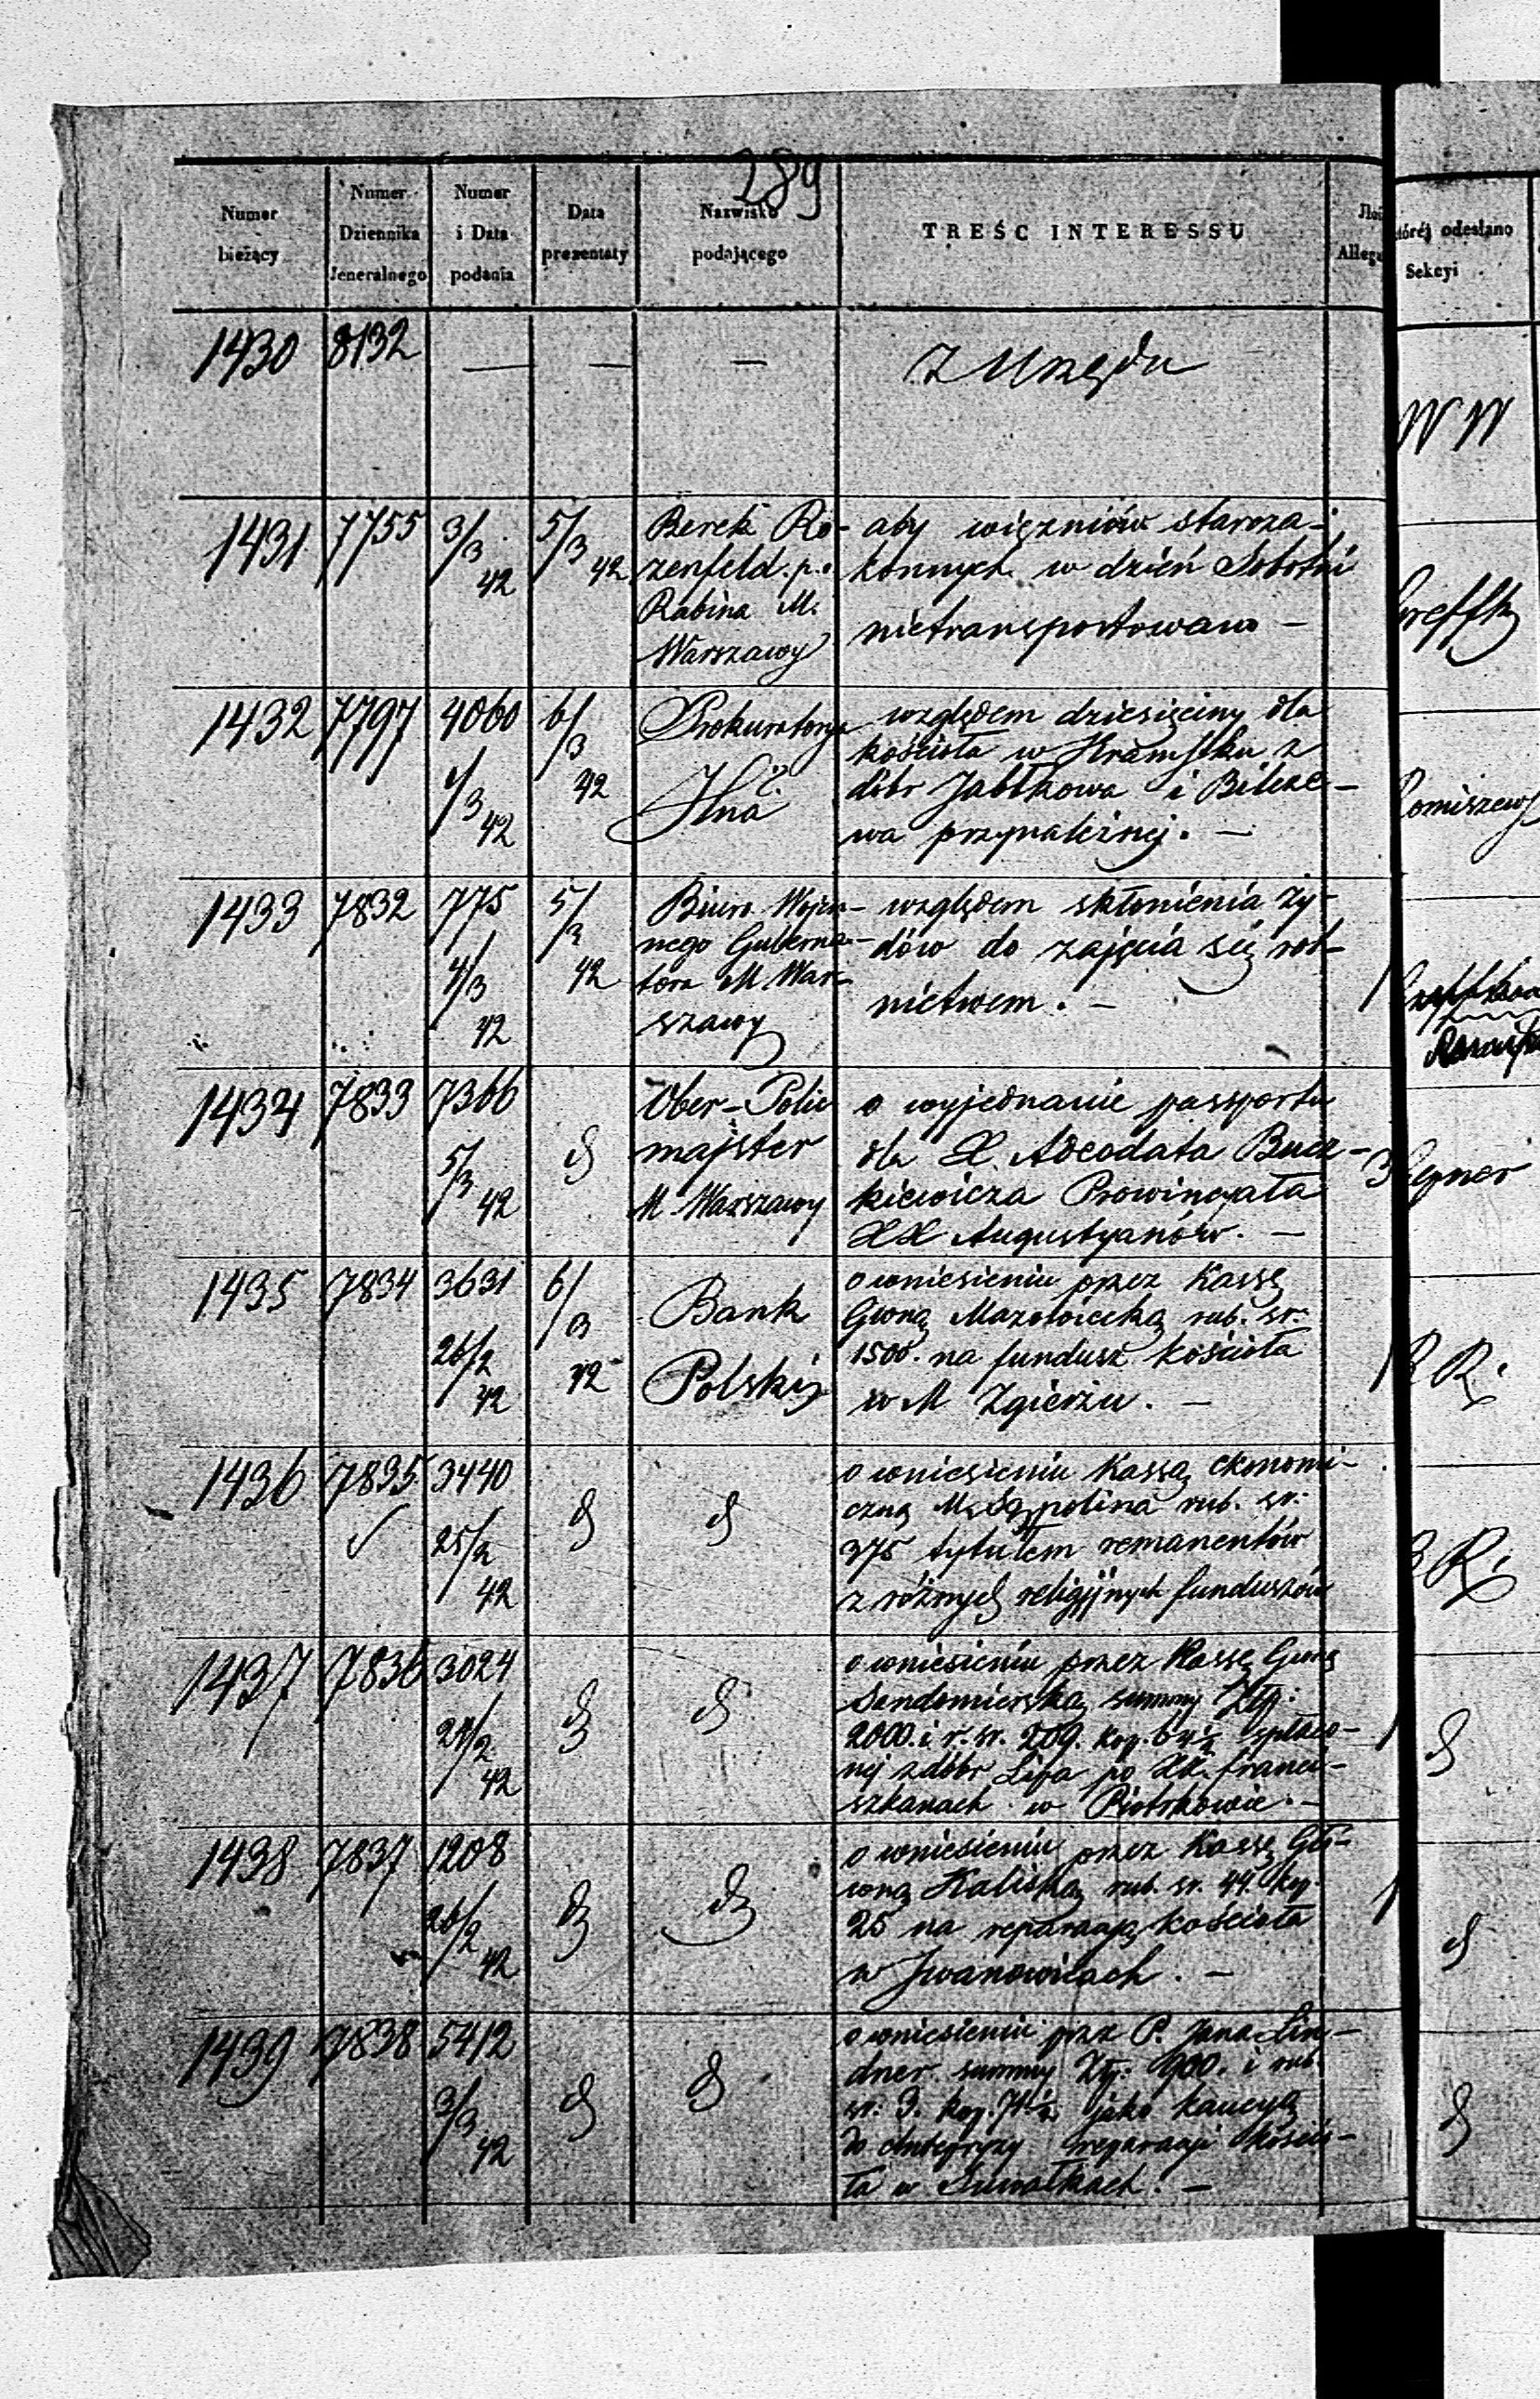 289
Numer bieżący
Numer Dziennika Jeneralnego
Numer i Data podania
Data prezentaty
Nazwisko podającego
TREŚC INTERESSU
Allega
której odesłano Sekcyi
1430 8132 — — — Z Urzędu
W W
1431 7755 3/3 42 5/3 42
Berek Ro-
zenfeld p.o
Rabina M.
Warszawy
aby więzniów staroza-
konnych w dzień Sobotni
nietransportowano —
1432 7797 4060 1/3 42 6/3 42
Prokuratorya
względem dziesięciny dla
kościoła w Kramsku z
dóbr Jabłkowa i Bilcze-
wa przynależnej. —
1433 7832 775 4/3 42 5/3 42
Biuro Wojen-
nego Guberna-
tora M War-
szawy
względem skłonienia ży-
dów do zajęcia się rol-
nictwem. —
1434 7833 7366 5/3 42 d
Ober-Polic
majster
M Warszawy
o wyjednanie passportu
dla X. Adeodata Bucz-
kiewicza Prowincyała
XX Augustyanów. —
3
1435 7834 3631 26/2 42 6/3 42
Bank
Polski
o wniesieniu przez Kassę
Gwną Mazowiecką rub. sr.
1500. na fundusz kościoła
w M Zgierzu. —
1
R.
1436 7835 3440 25/2 42 d d
o wniesieniu Kassą ekonomi-
czną M. Sępolina rub. sr.
375 tytułem remanentów
z różnych religijnych funduszów
R.
1437 7836 3024 24/2 42 d d
o wniesieniu przez Kassę Gwną
Sandomierską summy Złp:
2000. i r. sr. 209. kop. 64½ spłaco-
nej z dóbr Lipa po XX. Franci-
szkanach w Piotrkowie. —
d
1438 7837 1208 26/2 42 d d
o wniesieniu przez Kassę Głó-
wną Kaliską rub. sr. 44. kop.
25 na reparacyą kościoła
w Iwanowicach. —
1
d
1439 7838 5412 3/3 42 d d
o wniesieniu prze P. Jana Lin-
dner summy Złp: 900. i rub.
sr: 3. kop. 71½ jako kaucyą
do Antepryzy reparacyi kościo-
ła w Suwałkach. —
d